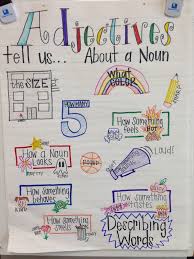 Adjectives
tell us... About a Noun
the SIZE
What Color?
How many?
5
How something feels
Hot
How a Noun Looks
Loud!
How something behaves
How something tastes
How something smells
Describing Words